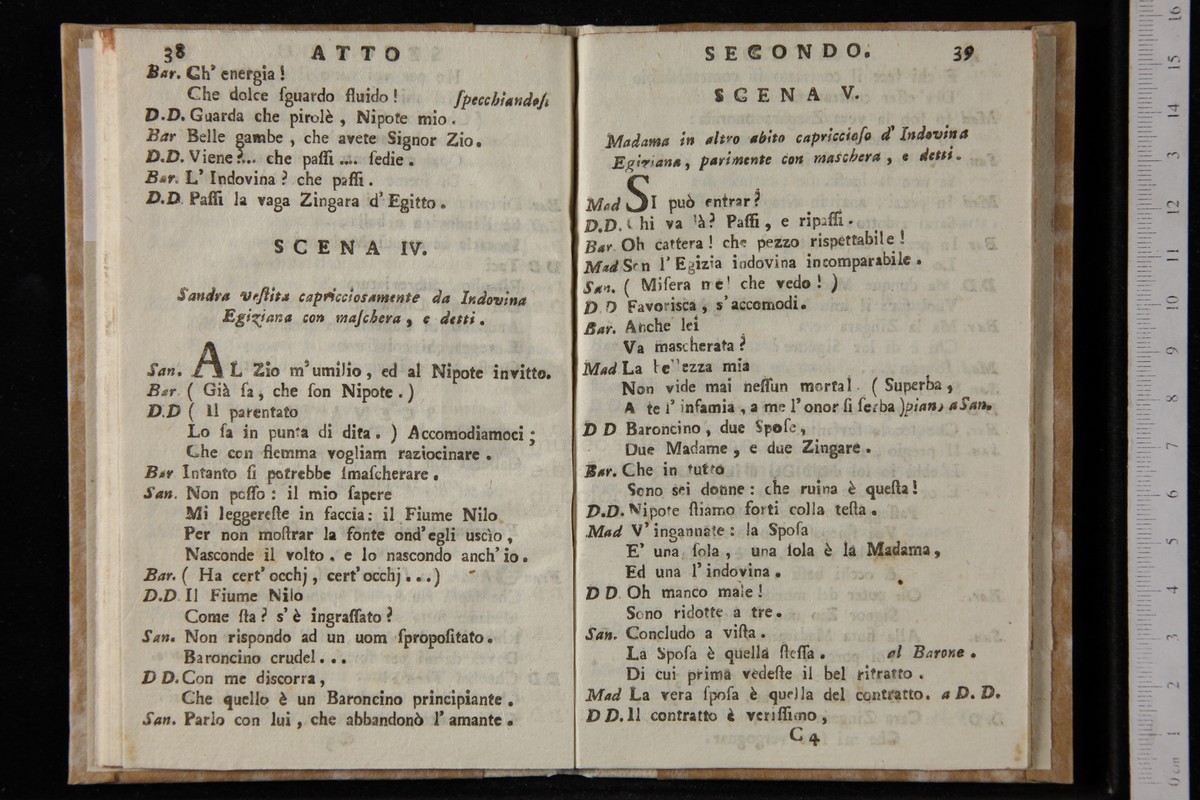 38 ATTO
Bar. Ch' energia !
Che dolce ſguardo fluido ! ſpecchiandoſi
D.D. Guarda che pirolè , Nipote mio .
Bar Belle gambe , che avete Signor Zio.
D.D. Viene ?... che paſſi .... ſedie .
Bar. L' Indovina ? che paſſi .
D.D. Paſſi la vaga Zingara d' Egitto .
SCENA IV.
Sandra veſtita capricciosamente da Indovina
Egiziana con maſchera , e detti .
San. AL Zio m' umilio , ed al Nipote invitto.
Bar ( Già ſa , che ſon Nipote . )
D.D ( Il parentato
Lo ſa in punta di dita . ) Accomodiamoci ;
Che con flemma vogliam raziocinare .
Bar Intanto ſi potrebbe ſmaſcherare .
San. Non poſſo : il mio ſapere
Mi leggereſte in faccia : il Fiume Nilo
Per non moſtrar la fonte ond' egli uscìo ,
Nasconde il volto . e lo nascondo anch' io .
Bar. ( Ha cert' occhj , cert' occhj . . . )
D.D Il Fiume Nilo
Come ſta ? s' è ingraſſato ?
San. Non rispondo ad un uom ſpropoſitato .
Baroncino crudel . . .
D D. Con me discorra ,
Che quello è un Baroncino principiante .
San. Parlo con lui , che abbandonò l' amante .
SECONDO. 39
SCENA V.
Madama in altro abito capriccioſo d' Indovina
Egiziana , parimente con maschera , e detti .
Mad SI può entrar ?
D.D. Chi va là ? Paſſi , e ripaſſi .
Bar Oh cattera ! che pezzo rispettabile !
Mad Son l' Egizia indovina incomparabile .
San. ( Miſera me ! che vedo ! )
D D Favorisca , s' accomodi .
Bar. Anche lei
Va mascherata ?
Mad La bellezza mia
Non vide mai neſſun mortal . ( Superba ,
A te l' infamia , a me l' onor ſi ſerba ) piano a San.
D D Baroncino , due Spoſe ,
Due Madame , e due Zingare .
Bar. Che in tutto
Sono sei donne : che ruina è queſta !
D.D. Nipote ſtiamo forti colla teſta .
Mad V' ingannate : la Spoſa
E' una ſola , una ſola è la Madama ,
Ed una l' indovina .
D D Oh manco male !
Sono ridotte a tre .
San. Concludo a viſta .
La Spoſa è quella ſteſſa . al Barone .
Di cui prima vedeſte il bel ritratto .
Mad La vera ſpoſa è quella del contratto. a D. D.
D D. Il contratto è veriſſimo ,
C 4